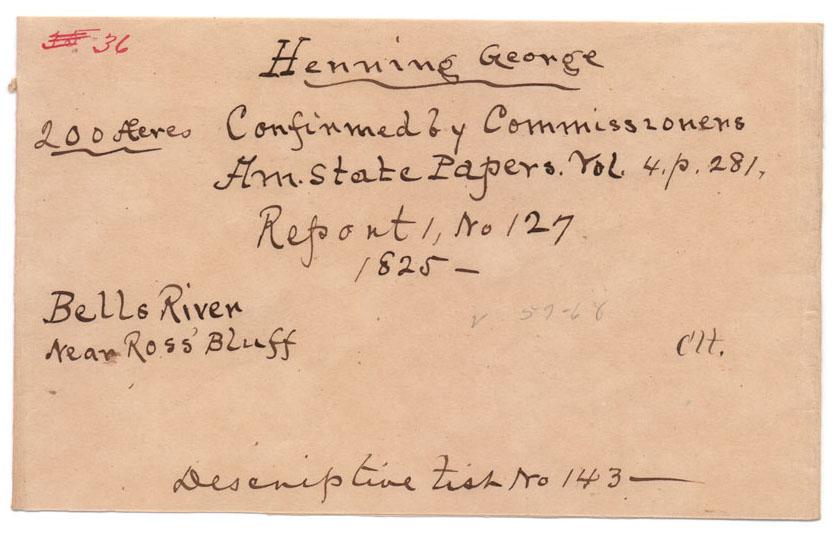 36
Henning George
200 Acres Confirmed by Commissioners
Am. State Papers. Vol. 4. p. 281,
Report 1, No 127
1825 —
Bells River
Near Ross' Bluff
Descriptive List No 143 —